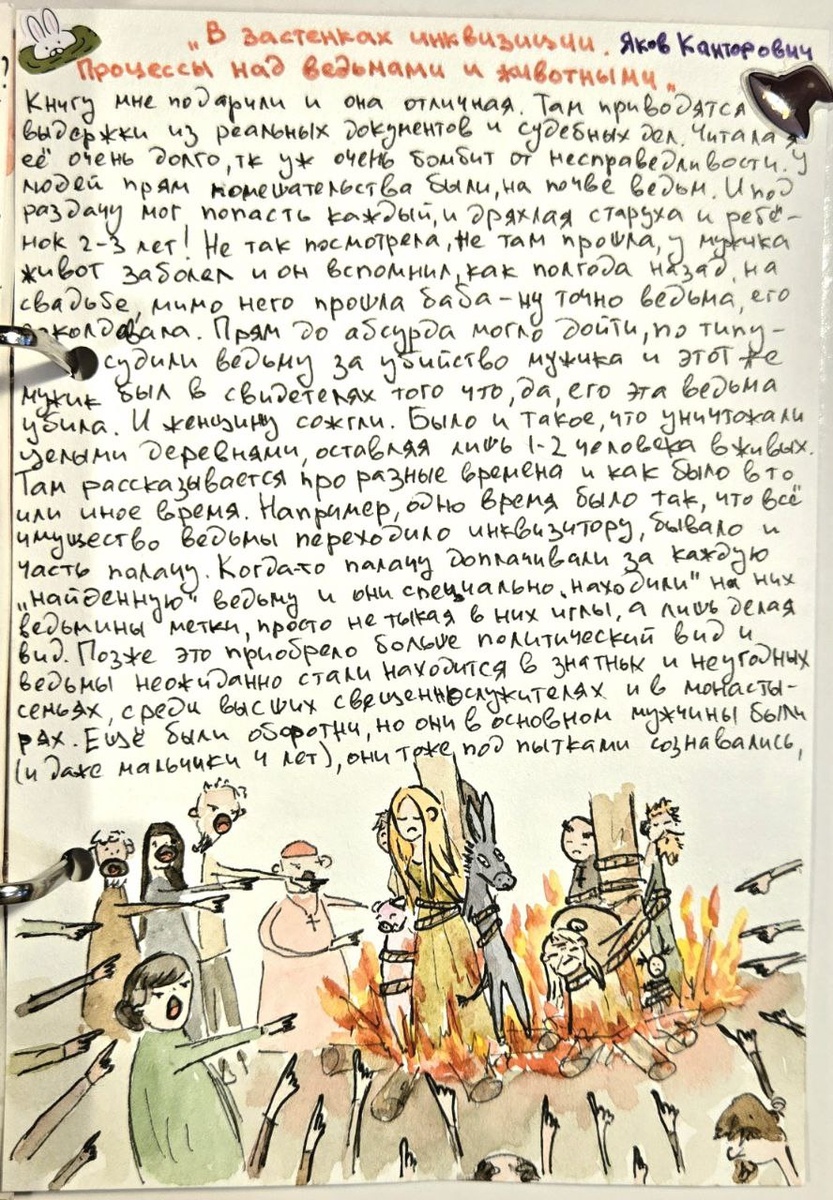 „В застенках инквизиции. Яков Канторович
Процессы над ведьмами и животными„
Книгу мне подарили и она отличная. Там приводятся
выдержки из реальных документов и судебных дел. Читала я
её очень долго, тк уж очень бомбит от несправедливости. У
людей прям помешательства были, на почве ведьм. И под
раздачу мог попасть каждый, и дряхлая старуха и ребё-
нок 2-3 лет! Не так посмотрела, не там прошла, у мужика
живот заболел и он вспомнил, как полгода назад, на
свадьбе, мимо него прошла баба-ну точно ведьма, его
околдовала. Прям до абсурда могло дойти, по типу-
судили ведьму за убийство мужика и этот же
мужик был в свидетелях того что, да, его эта ведьма
убила. И женщину сожгли. Было и такое, что уничтожали
целыми деревнями, оставляя лишь 1-2 человека в живых.
Там рассказывается про разные времена и как было в то
или иное время. Например, одно время было так, что всё
имущество ведьмы переходило инквизитору, бывало и
часть палачу. Когда-то палачу доплачивали за каждую
„найденную" ведьму и они специально „находили" на них
ведьмины метки, просто не тыкая в них иглы, а лишь делая
вид. Позже это приобрело больше политический вид и
ведьмы неожиданно стали находится в знатных и неугодных
семьях, среди высших священнослужителях и в монасты-
рях. Ещё были оборотни, но они в основном мужчины были
(и даже мальчики 4 лет), они тоже под пытками сознавались,